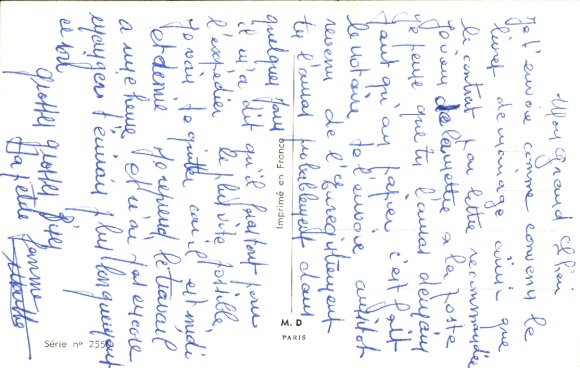 Mon grand chéri
Je t'envoie comme convenu le
livret de mariage ainsi que
le contrat par lettre recommandée
Je viens de la mettre à la poste
je pense que tu l'auras demain
faut qu'au papier c'est fait
le notaire te l'envoie aussitôt
revenu de l'Enregistrement
tu l'auras probablement dans
quelques jours
il m'a dit qu'il faisait pour
l'expédier le plus vite possible
Je vais te quitter car il est midi
et demie je reprend le travail
a une heure et n'ai pas encore
mangé je t'écrirai plus longuement
ce soir
grosses grosses bises
Ta petite femme
Imprimé en France
M. D
PARIS
Série n° 255